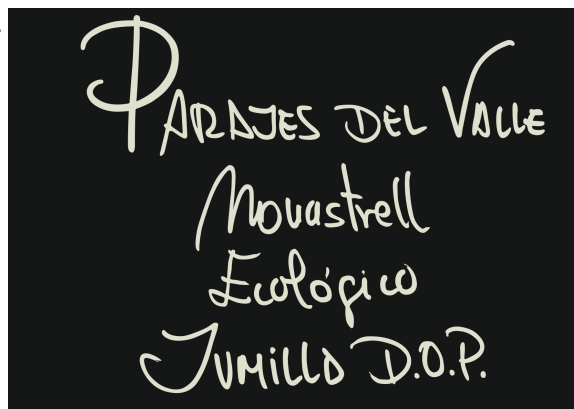 PARAJES DEL VALLE
Monastrell
Ecológico
JUMILLA D.O.P.